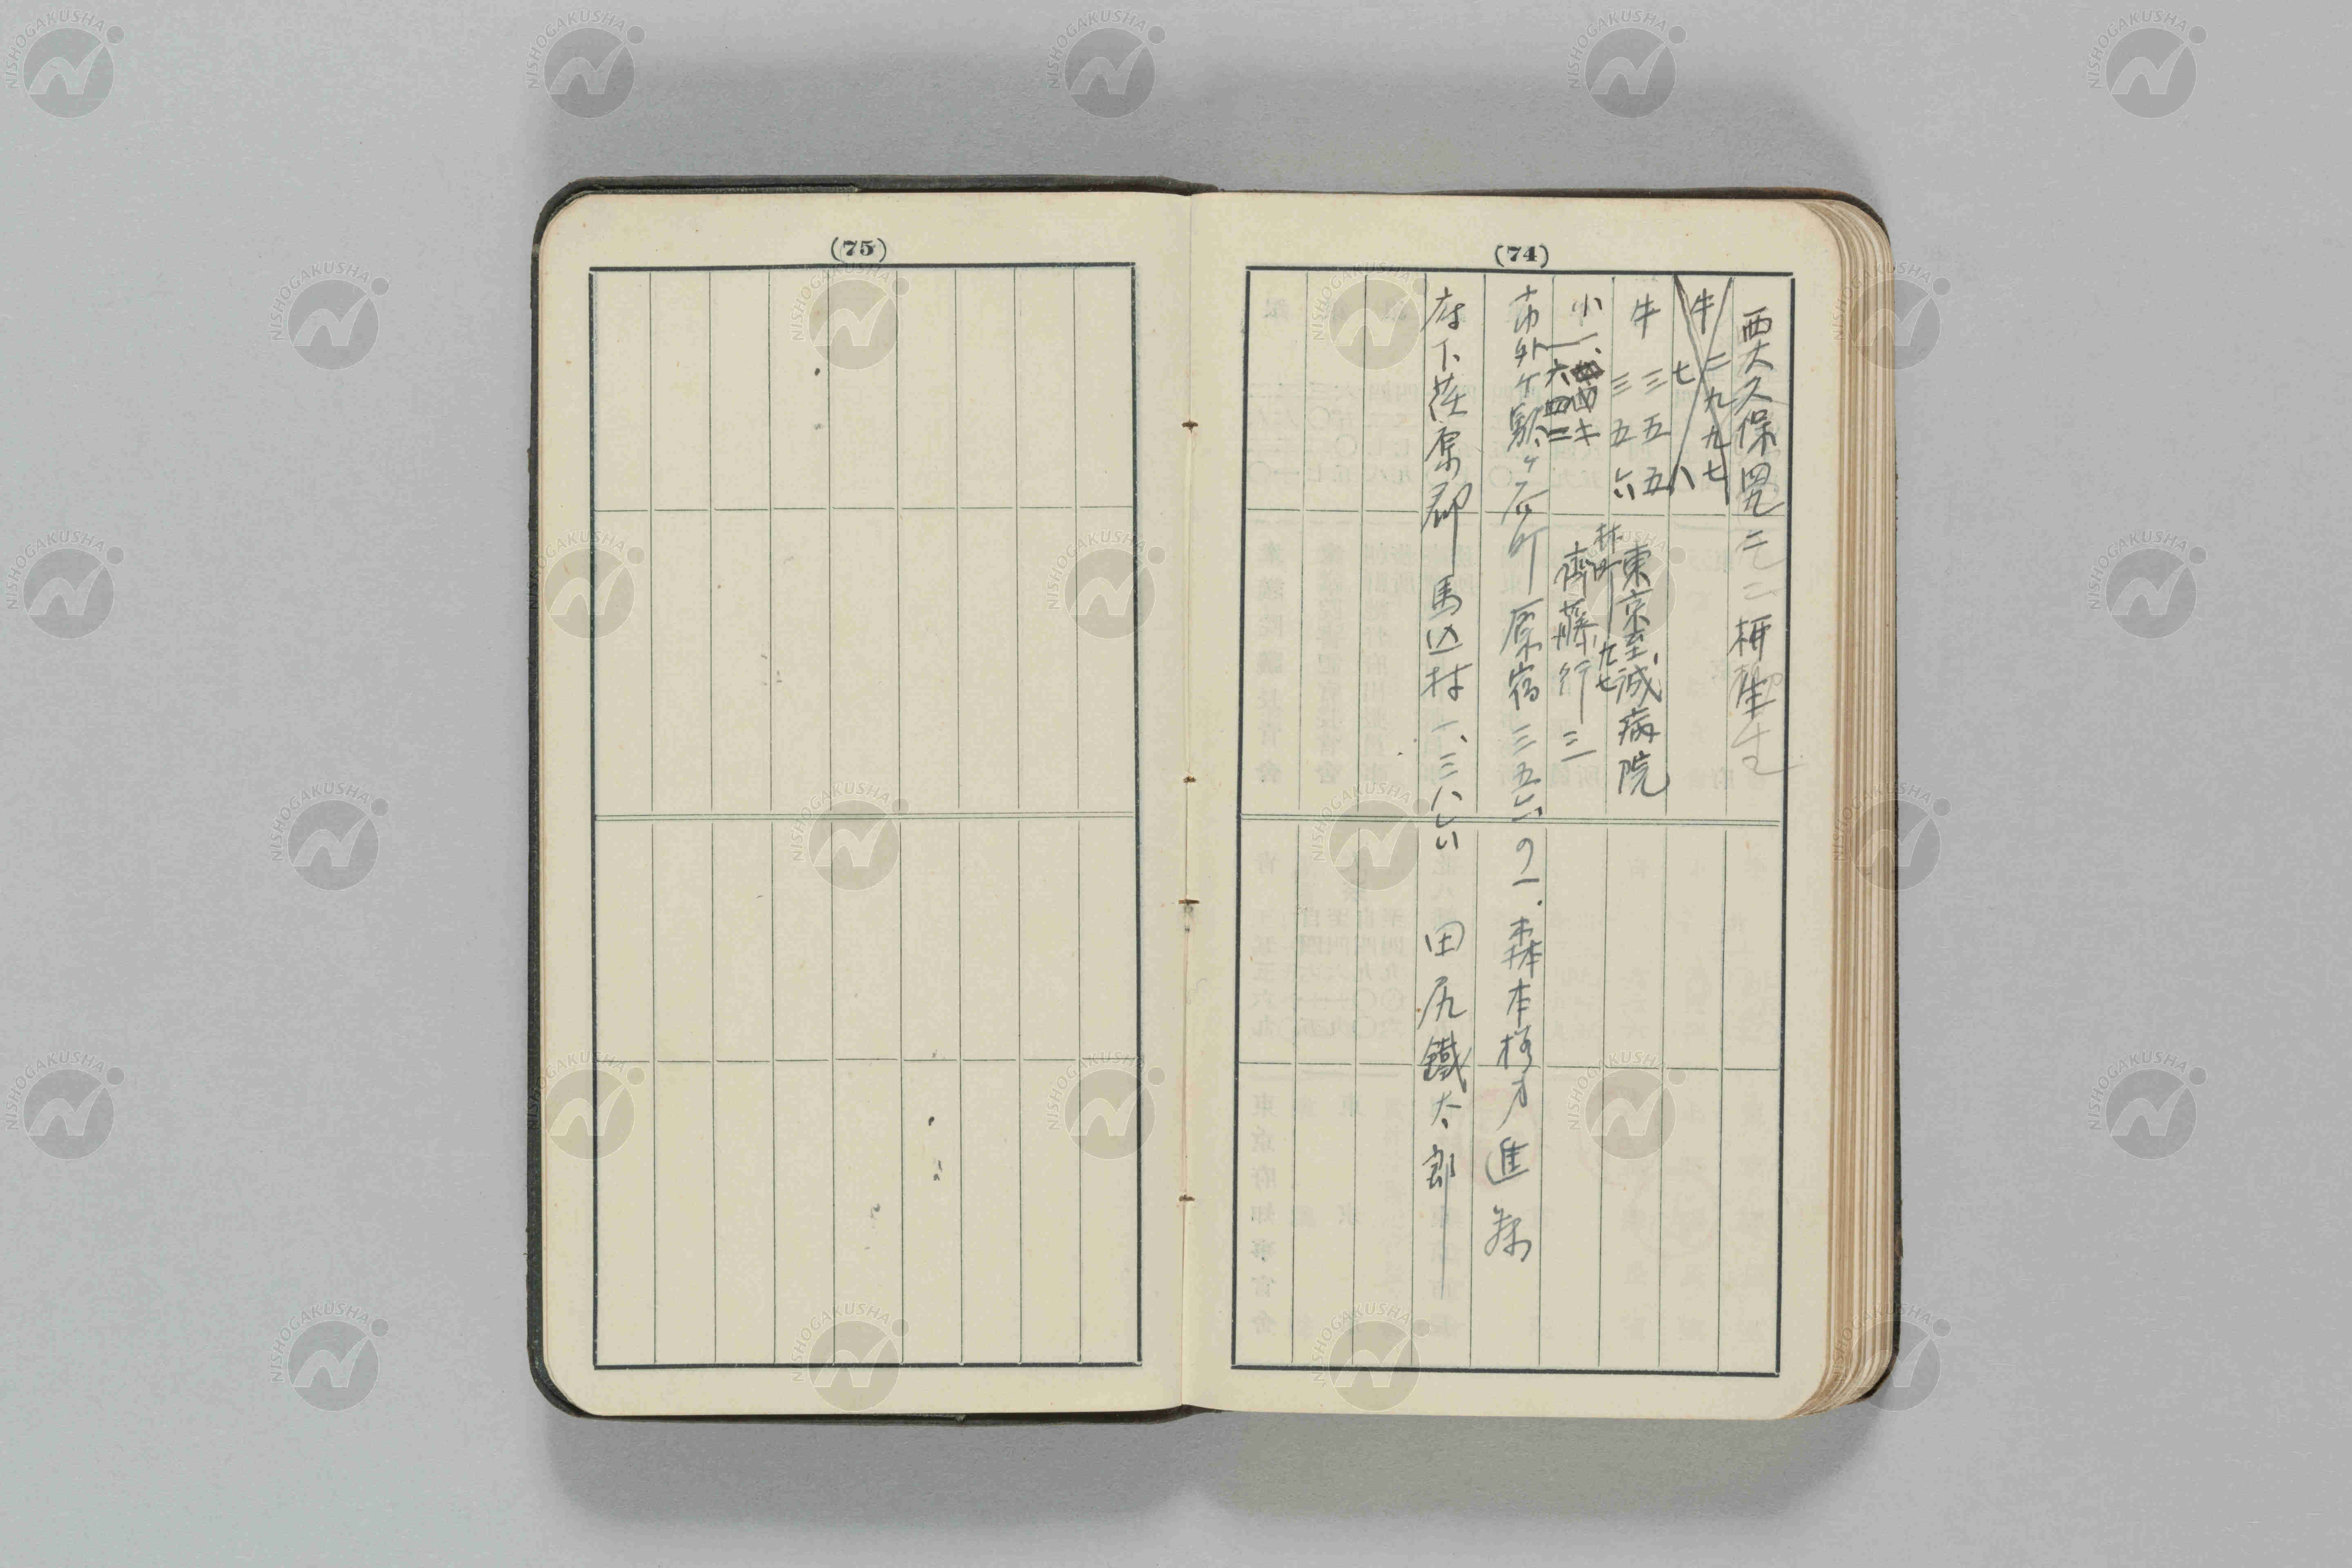 (74)
西大久保四九二 柄生
牛 二九九七
七八
牛 三五五
三五六
東京至誠病院
林町 九七
小一、
六四二
齊藤行三
市外千駄ヶ谷町原宿三五六ノ一、森本様方 進
府下荏原郡 馬込村 一、三八六 田尻鐵太郎
(75)